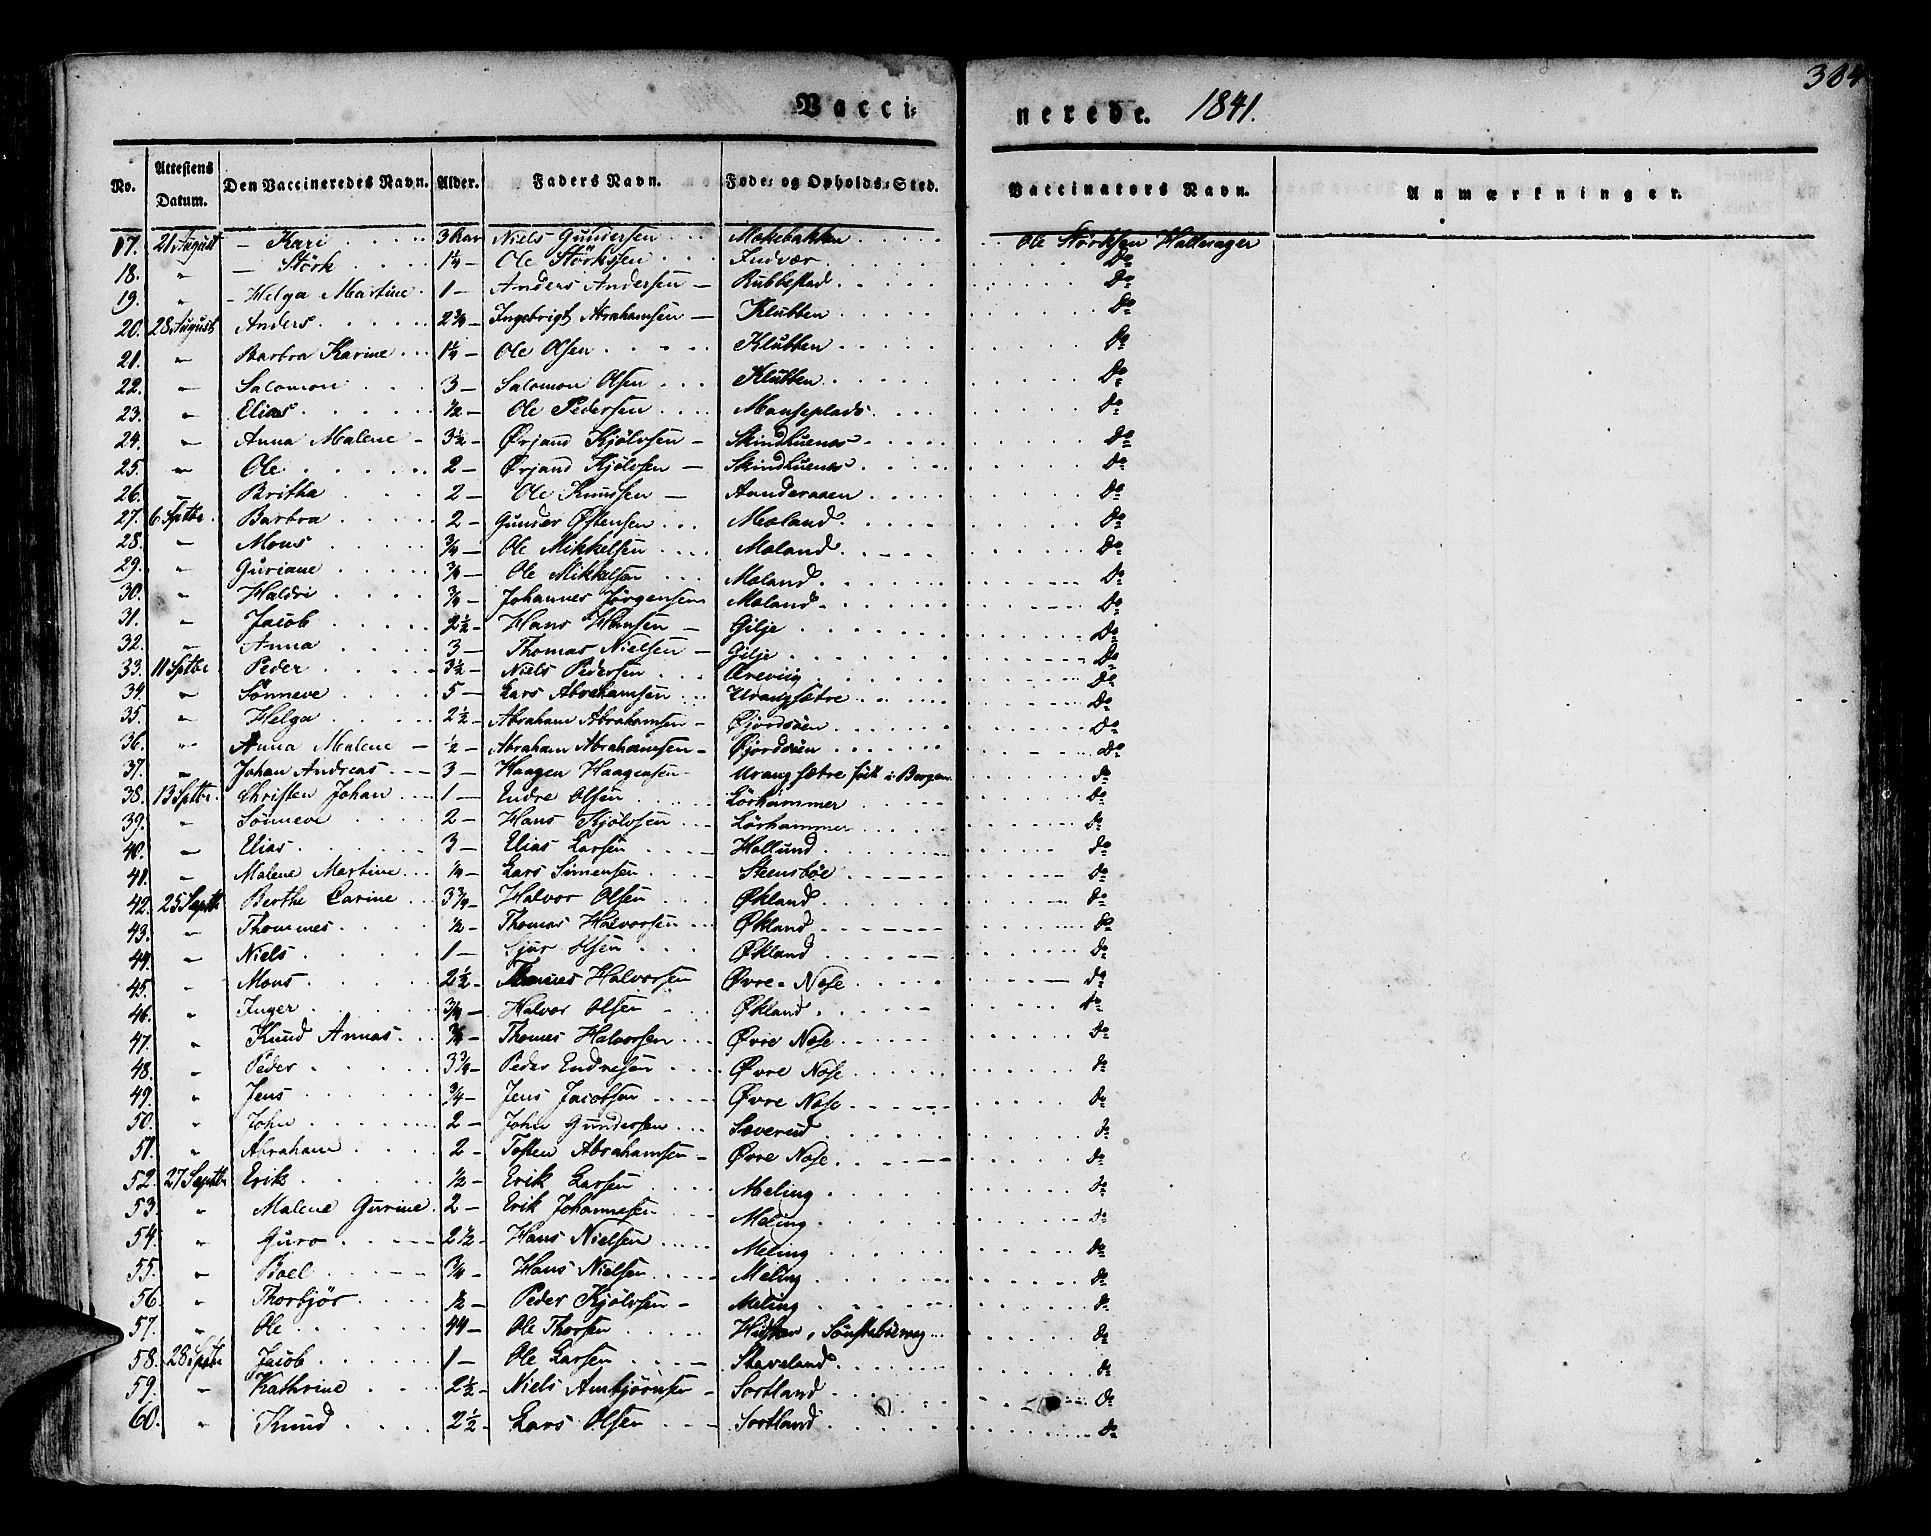 304
Vacci- nerede. 1841.
No. Attestens Datum. Den Vaccineredes Navn. Alder. Faders Navn. Føde- og Opholds-Sted. Vaccinators Navn. Anmærkninger.
17. 21 August - Kari 3 Niels Gundersen Mokebakken Ole Störksen Hattesager
18. " - Störk 1¼ Ole Störksen Indvær Do
19. " - Helga Martine 1 - Anders Andersen - Rubbestad Do
20. 28 August Anders 2¾ - Ingebrigt Abrahamsen - Klubben Do
21. " Barbra Karine 1¼ - Ole Olsen Klubben Do
22. " Salomon 3 - Salomon Olsen Klubben Do
23. " Elias ½ - Ole Pedersen Manseplads Do
24. " Anna Malene - 3½ - Ørjand Kjölvsen - Skindhuenes Do
25. " Ole 2 - Ørjand Kjölvsen - Skindhuenes Do
26. " Britha 2 - Ole Knussen - Aanderaaen Do
27. 6 Sptbr. Barbra 2 - Gunder Østensen Mæland Do
28. " Mons ¾ - Ole Mikkelsen Mæland Do
29. " Guriane ¾ - Ole Mikkelsen Mæland Do
30. " Haldri ¾ - Johannes Jørgensen Mæland Do
31. " Jacob 2½ - Hans Hansen - Gilje Do
32. " Anna 3 - Thomas Nielsen - Gilje Do
33. 11 Sptbr Peder 3½ - Niels Pedersen Ureviig Do
34. " Sönneve 5 - Lars Abrahamsen Urangsætre Do
35. " Helga 2½ - Abraham Abrahamsen - Øjordöen Do
36. " Anna Malene - ½ - Abraham Abrahamsen - Øjordöen Do
37. " Johan Andreas 3 - Haagen Haagensen - Urangsætre föd i Bergen Do
38. 13 Sptbr. Christen Johan 1 - Endre Olsen Lörhammer Do
39. " Sönneve 2 - Hans Kjölvsen Lörhammer Do
40. " Elias 3 - Elias Larsen Hollund Do
41. " Malene Martine ¼ - Lars Simensen Steensböe Do
42. 25 Septbr. Berthe Carine 3¾ - Halvor Olsen Økland Do
43. " Thommes ½ - Thomas Halvorsen Økland Do
44. " Niels 1 - Sjur Olsen Økland Do
45. " Mons 2½ - Thomes Halvorsen Øvre-Nose Do
46. " Inger ¾ - Halvor Olsen Økland Do
47. " Knud Annas ¾ - Thomes Halvorsen Øvre Nose Do
48. " Peder 3¾ - Peder Endresen Øvre Nose Do
49. " Jens ¾ - Jens Jacobsen Øvre Nose Do
50. " John 2 - John Gundersen Sæverud Do
51. " Abraham 2 - Tosten Abrahamsen - Øvre Nose Do
52. 27 Septbr Erik ½ - Erik Larsen Meling Do
53. " Malene Gurine 2 - Erik Johannesen Meling Do
54. " Guro 2½ - Hans Nielsen Meling Do
55. " Boel ¾ - Hans Nielsen Meling Do
56. " Thorbjör ½ - Peder Kjölvsen - Meling Do
57. " Ole 44 - Ole Thorsen Do
58. 28 Sptbr Jacob 1 - Ole Larsen Staveland Do
59. " Kathrine 2½ - Niels Ambjörnsen - Sortland Do
60. " Knud 2½ Lars Olsen Sortland Do